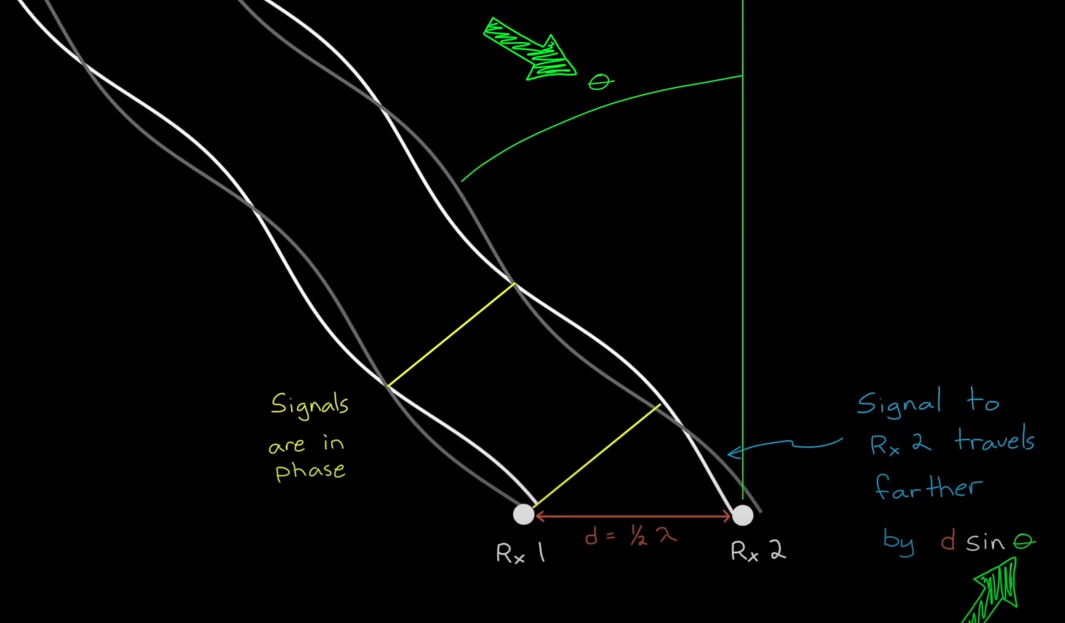 θ
Signals
are in
phase
Signal to
Rx 2 travels
farther
by d sin θ
d = ½ λ
Rx 1
Rx 2